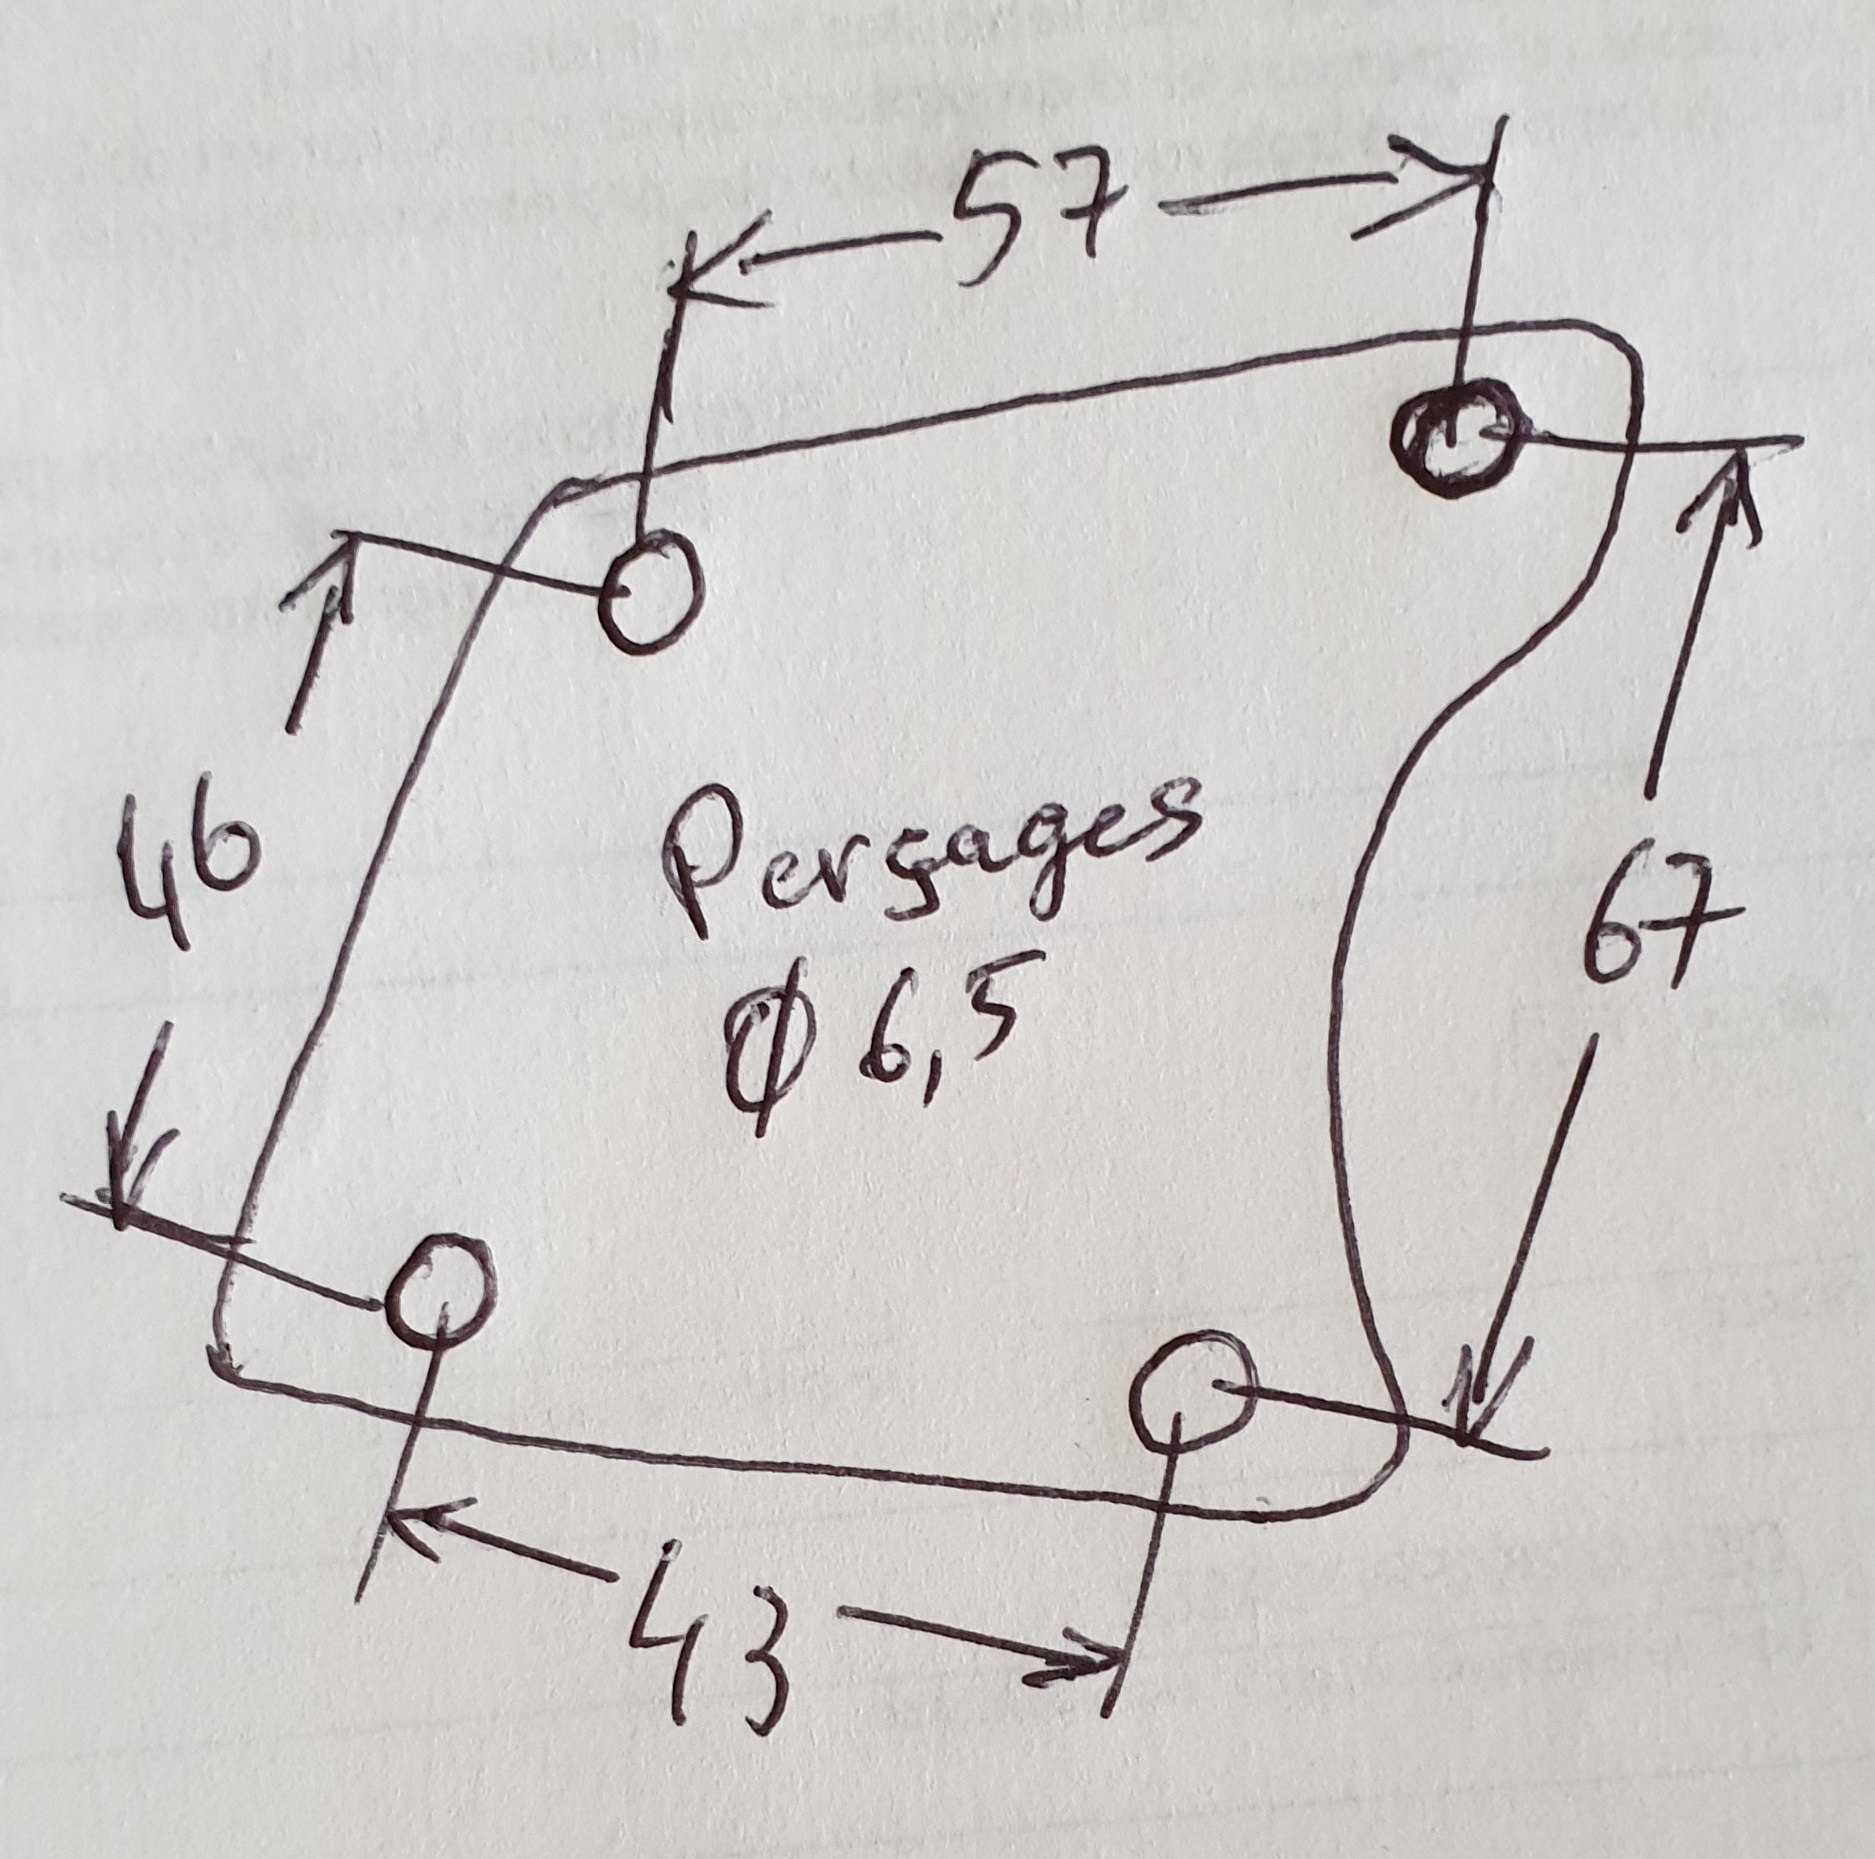 57
46
Persages
Ø 6,5
67
43